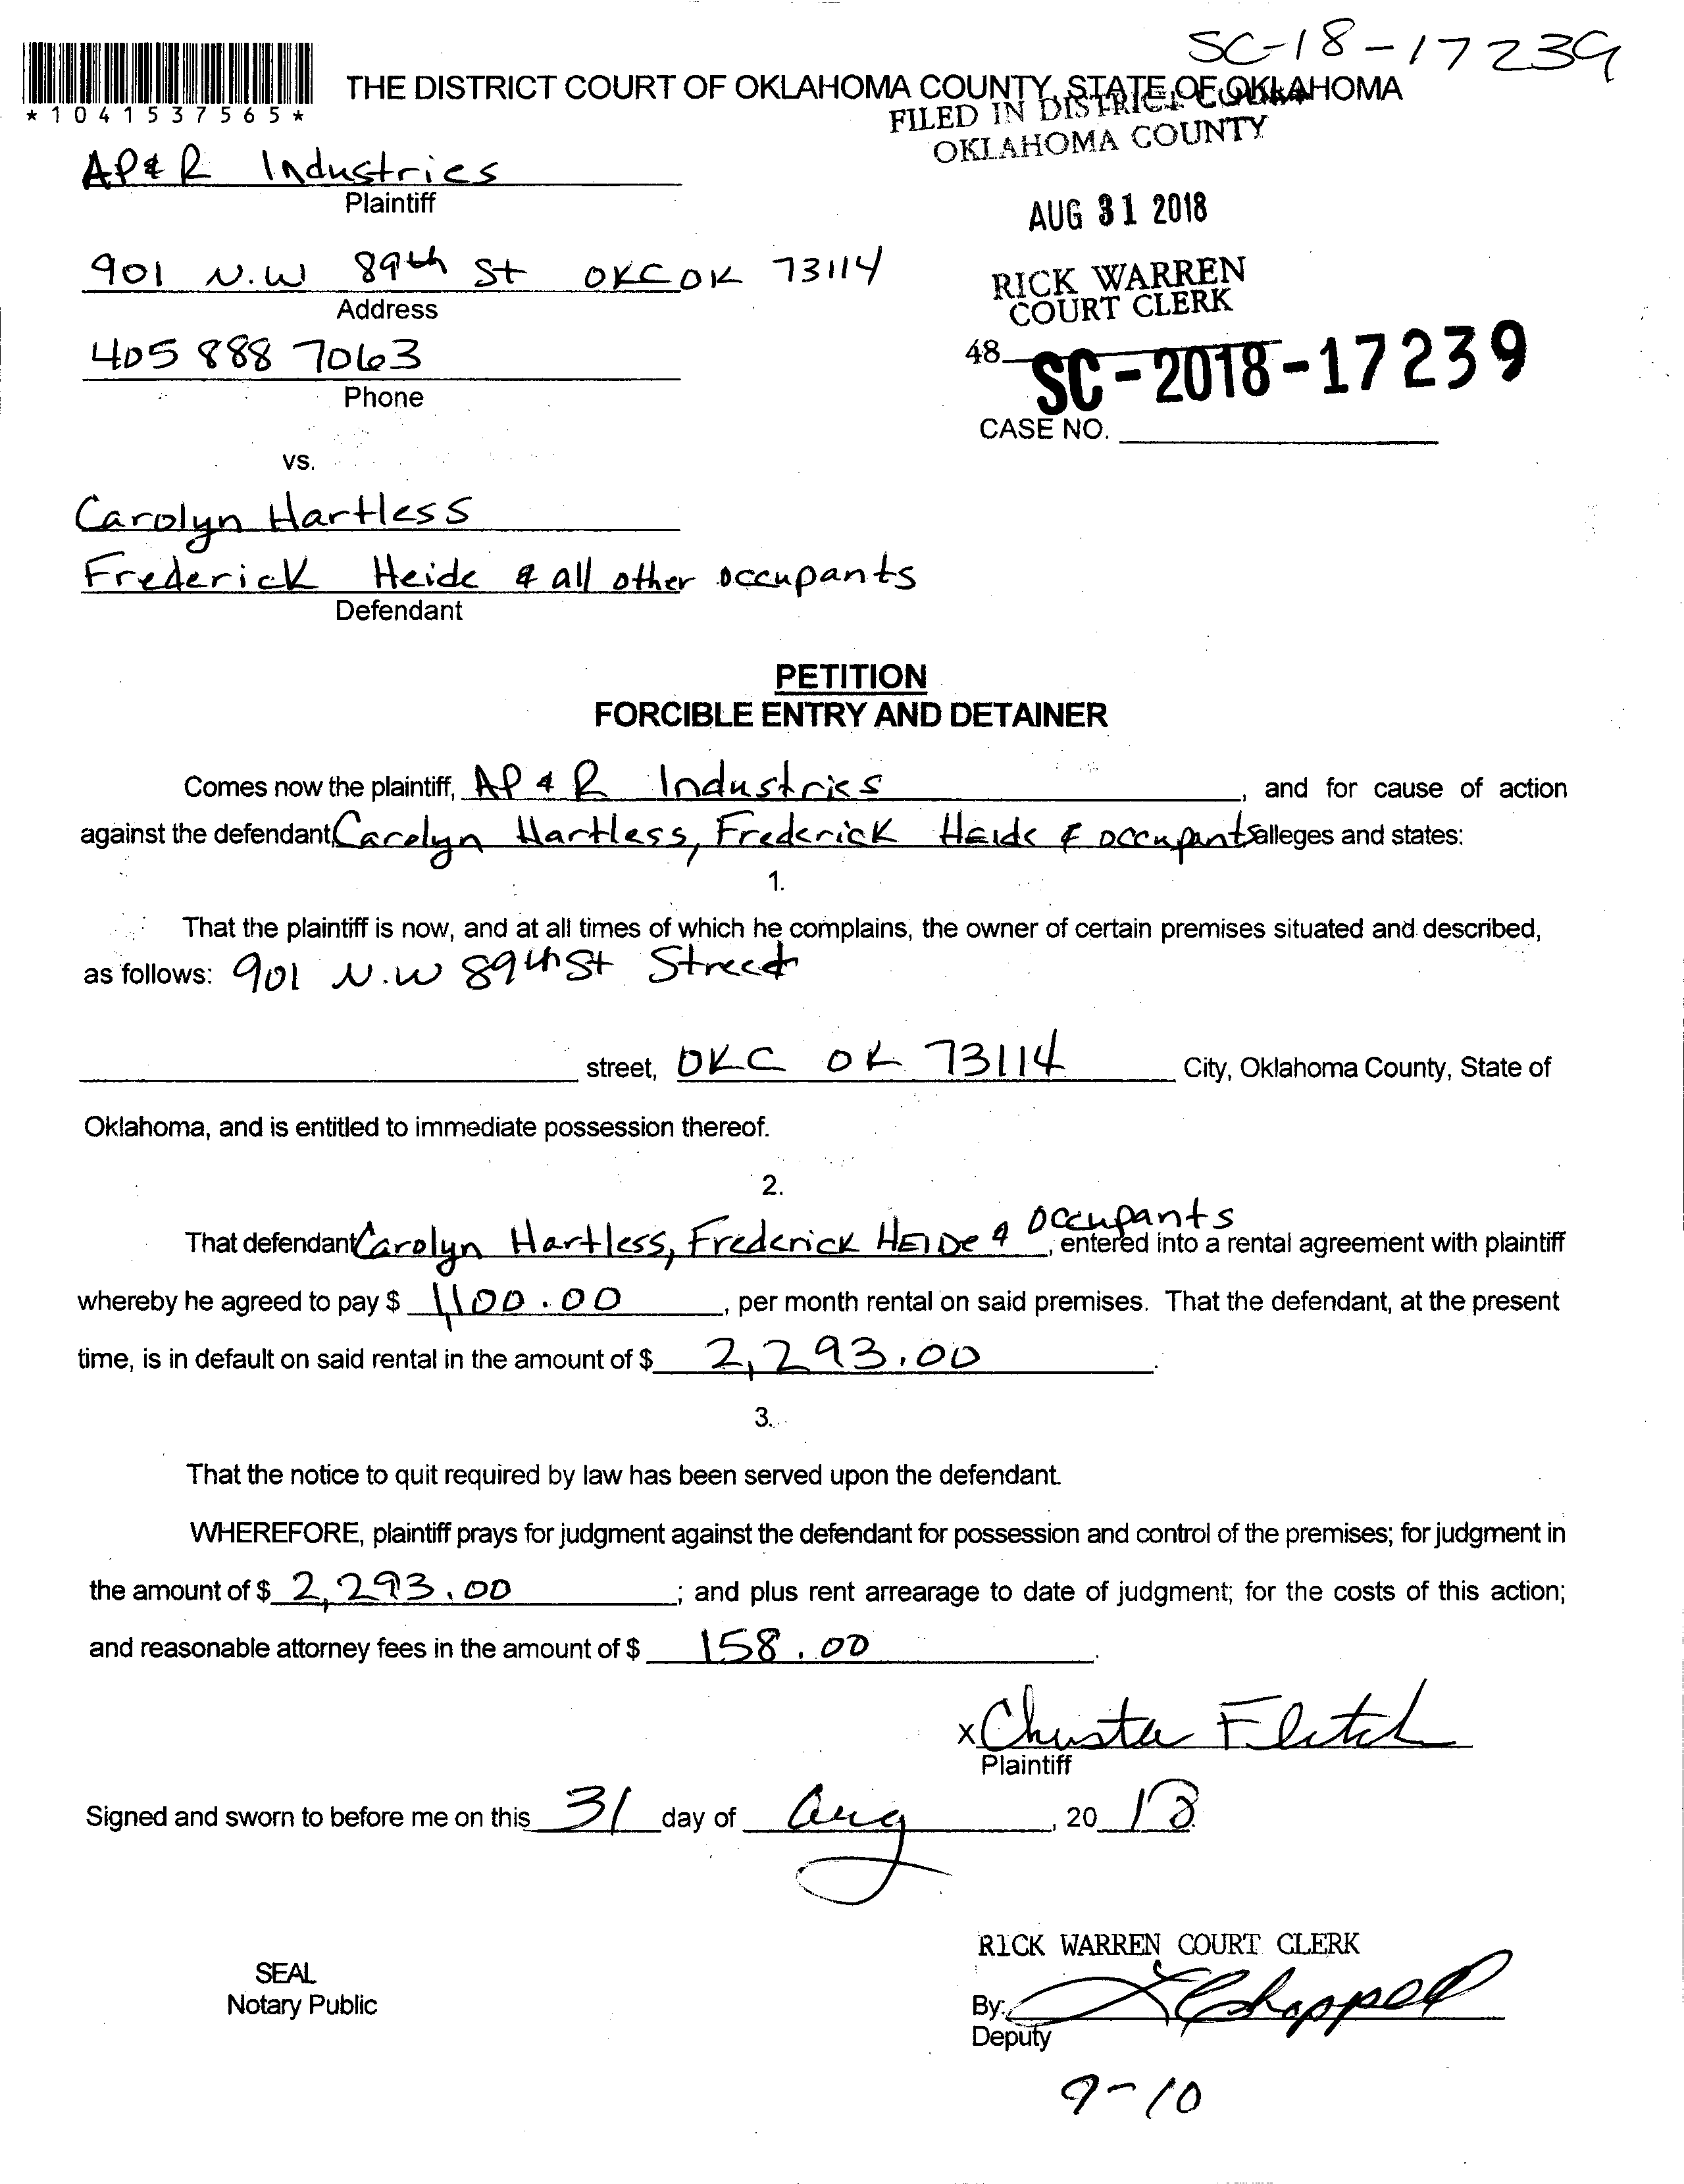 SC-18-17239
*1041537565*
THE DISTRICT COURT OF OKLAHOMA COUNTY, STATE OF OKLAHOMA
FILED IN DISTRICT COURT
OKLAHOMA COUNTY
AP & R Industries
Plaintiff
AUG 31 2018
901 N.W 89th St OKC OK 73114
Address
RICK WARREN
COURT CLERK
405 888 7063
Phone
48
SC-2018-17239
CASE NO.
vs.
Carolyn Hartless
Frederick Heide & all other occupants
Defendant
PETITION
FORCIBLE ENTRY AND DETAINER
Comes now the plaintiff, AP & R Industries, and for cause of action
against the defendant, Carolyn Hartless, Frederick Heide & occupants alleges and states:
1.
That the plaintiff is now, and at all times of which he complains, the owner of certain premises situated and described,
as follows: 901 N.W 89th St Street
street, OKC OK 73114 City, Oklahoma County, State of
Oklahoma, and is entitled to immediate possession thereof.
2.
That defendant Carolyn Hartless, Frederick HEIDE & occupants, entered into a rental agreement with plaintiff
whereby he agreed to pay $ 1100.00, per month rental on said premises. That the defendant, at the present
time, is in default on said rental in the amount of $ 2,293.00.
3.
That the notice to quit required by law has been served upon the defendant.
WHEREFORE, plaintiff prays for judgment against the defendant for possession and control of the premises; for judgment in
the amount of $ 2,293.00; and plus rent arrearage to date of judgment; for the costs of this action;
and reasonable attorney fees in the amount of $ 158.00.
x
Plaintiff
Signed and sworn to before me on this 31 day of Aug, 2018
RICK WARREN COURT CLERK
SEAL
Notary Public
By: Chappell
Deputy
9-10